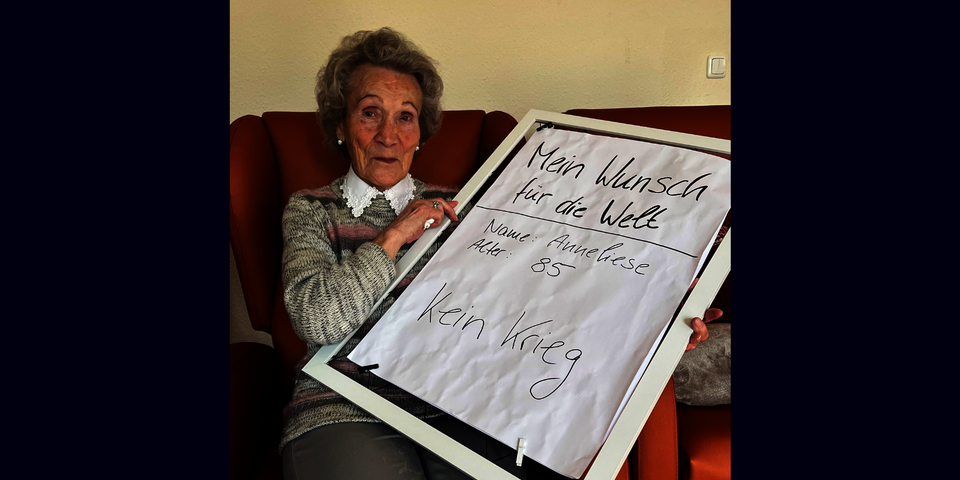 Mein Wunsch
für die Welt
Name: Anneliese
Alter: 85
Kein Krieg